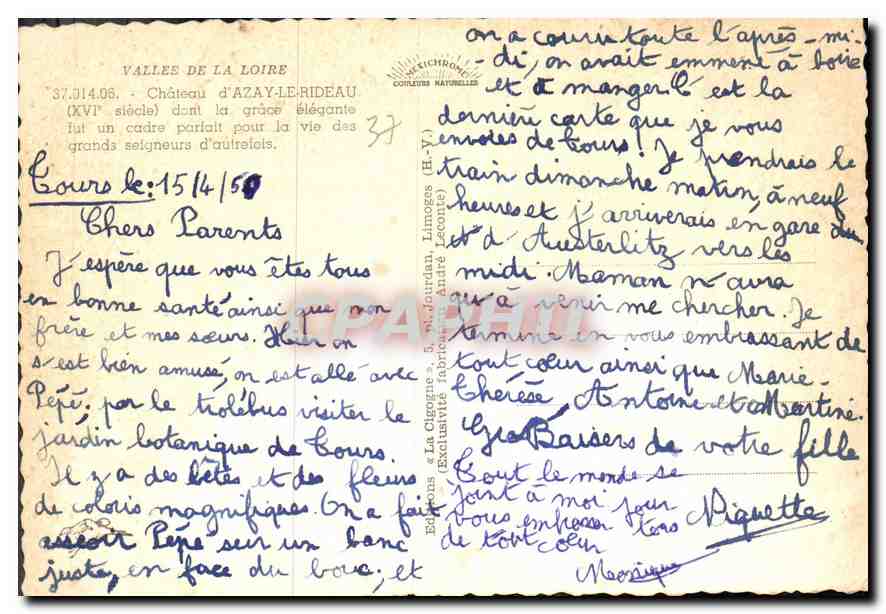 VALLEE DE LA LOIRE
37.014.06. - Château d'AZAY-LE-RIDEAU
(XVIe siècle) dont la grâce élégante
fut un cadre parfait pour la vie des
grands seigneurs d'autrefois.
37
MEXICHROME
COULEURS NATURELLES
Editions « La Cigogne », 5, pl. Jourdan, Limoges (H.-V.)
(Exclusivité fabrication André Leconte)
Tours le: 15/4/50
Chers Parents
J'espère que vous êtes tous
en bonne santé ainsi que mon
frère et mes sœurs. Hier on
s'est bien amusé, on est allé avec
Pépé, par le trolébus visiter le
jardin botanique de Tours.
Il y a des bêtes et des fleurs
de coloris magnifiques. On a fait
asseoir Pépé sur un banc
juste, en face du bouc, et
on a couru toute l'après-mi-
-di, on avait emmené à boire
et à manger. C'est la
dernière carte que je vous
envoies de Tours! Je prendrais le
train dimanche matin, à neuf
heures et j'arriverais en gare
d'Austerlitz vers les
midi. Maman n'aura
qu'à venir me chercher. Je
termine en vous embrassant de
tout cœur ainsi que Marie-
Thérèse Antoine et Martine.
Gros Baisers de votre fille
Niquette
Tout le monde se
joint à moi pour
vous embrasser tous
de tout cœur
Monique
CPAPHIL